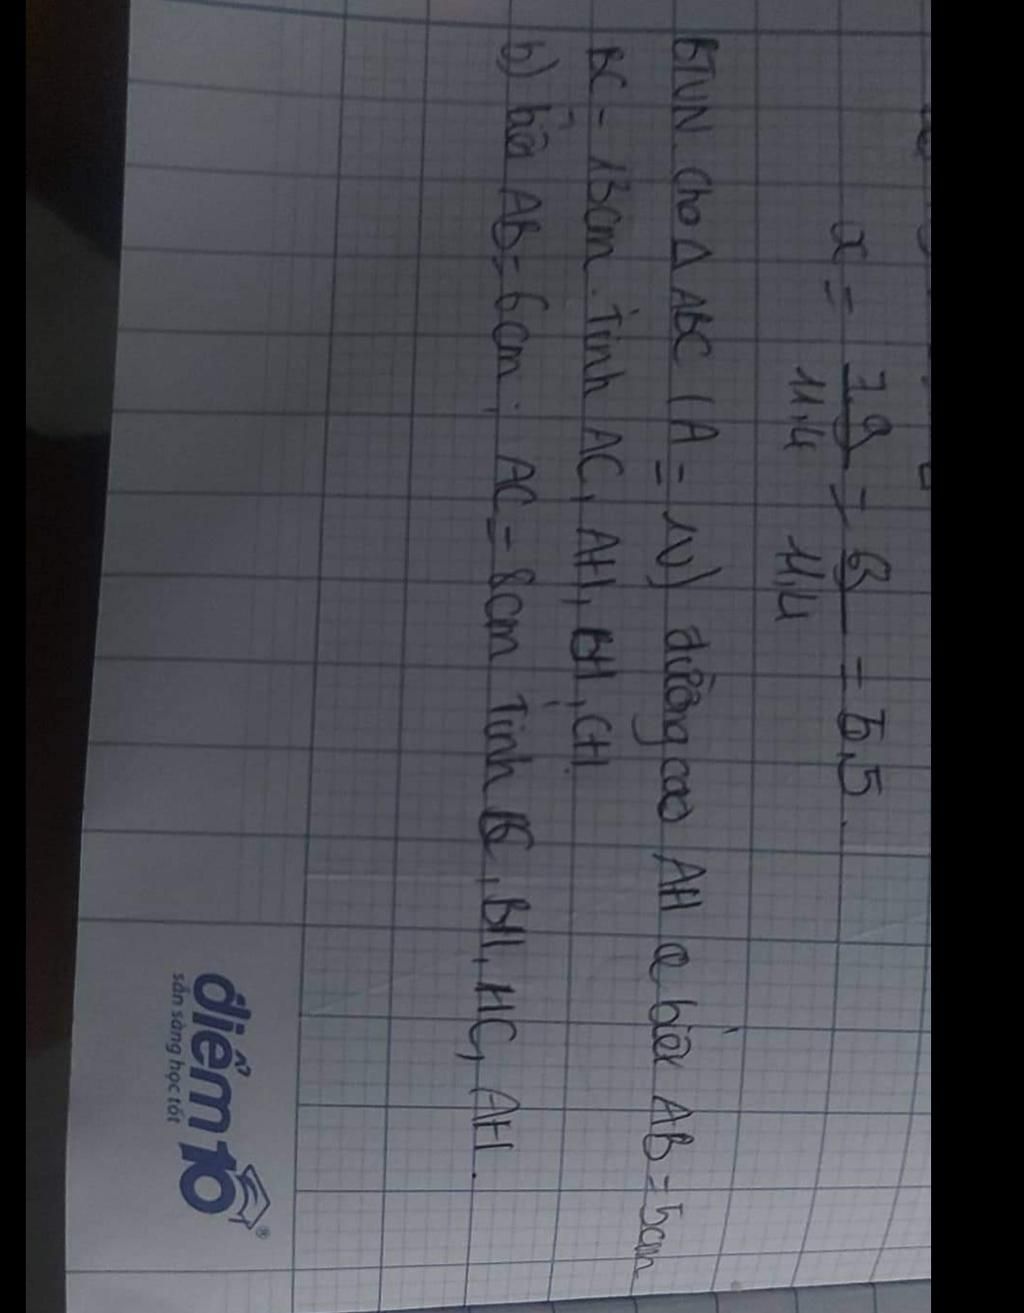 x = 7.9 / 11,4 = 63 / 11,4 = 5,5.
BTVN. Cho Δ ABC (A = 1V) đường cao AH a biết AB = 5cm
BC = 13cm. Tính AC, AH, BH, CH
b) biết AB = 6cm; AC = 8cm Tính BC, BH, HC, AH.
điểm 10 ®
sẵn sàng học tốt